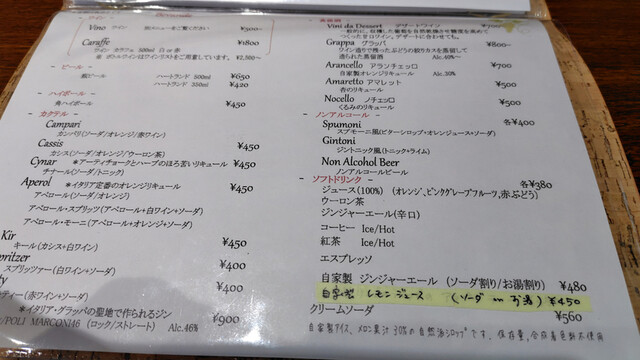 - ワイン -
Vino ワイン 別メニューをご覧ください ¥500~
Caraffe ¥1800
ワイン カラフェ 500ml 白 or 赤
他 ボトルワインはワインリストをご用意しています。 ¥2,500~
- ビール -
瓶ビール ハートランド 500ml ¥650
ハートランド 350ml ¥420
- ハイボール -
角ハイボール ¥450
- カクテル -
Campari
カンパリ(ソーダ/オレンジ/赤ワイン)
Cassis ¥450
カシス(ソーダ/オレンジ/ウーロン茶)
Cynar *アーティチョークとハーブのほろ苦いリキュール ¥450
チナール(ソーダ/トニック)
Aperol *イタリア定番のオレンジリキュール ¥450
アペロール(ソーダ/オレンジ)
アペロール・スプリッツ(アペロール+白ワイン+ソーダ)
アペロール・モーニ(アペロール+オレンジ+ソーダ)
Kir ¥450
キール(カシス+白ワイン)
pritzer ¥400
スプリッツァー(白ワイン+ソーダ)
ty ¥400
ティー(赤ワイン+ソーダ)
*イタリア・グラッパの聖地で作られるジン ¥900
/POLI MARCONI46 (ロック/ストレート) Alc.46%
Vini da Dessert デザートワイン
つくった甘口ワイン。デザートに合わせても。
Grappa グラッパ ¥800~
ワイン造りで残ったぶどうの絞りカスを蒸留して
造られた蒸留酒 Alc.40%~
Arancello アランチェッロ ¥700
自家製オレンジリキュール Alc.30%
Amaretto アマレット ¥500
杏のリキュール
Nocello ノチェッロ ¥500
くるみのリキュール
- ノンアルコール -
Spumoni 各¥400
スプモーニ風(ビターシロップ+オレンジジュース+ソーダ)
Gintoni
ジントニック風(トニック+ライム)
Non Alcohol Beer
ノンアルコールビール
- ソフトドリンク - 各¥380
ジュース(100%) (オレンジ、ピンクグレープフルーツ、赤ぶどう)
ウーロン茶
ジンジャーエール(辛口)
コーヒー Ice/Hot
紅茶 Ice/Hot
エスプレッソ
自家製 ジンジャーエール (ソーダ割り/お湯割り) ¥480
自家製 レモンジュース (ソーダ or お湯) ¥450
クリームソーダ ¥560
自家製アイス、メロン果汁30%の自然派シロップです。保存量、合成着色料不使用